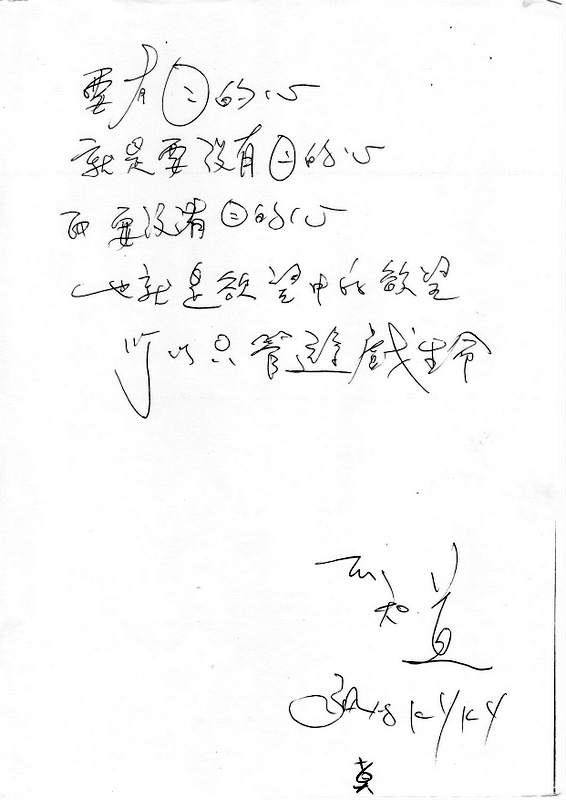 要有目的心
就是要沒有目的心
而要沒有目的心
也就是欲望中的欲望
所以只管遊戲生命
不知道
真